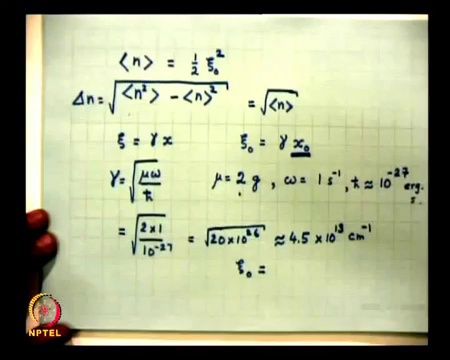 ⟨n⟩ = 1/2 ξ₀²
Δn = √(⟨n²⟩ − ⟨n⟩²) = √⟨n⟩
ξ = γ x ξ₀ = γ x₀
γ = √(μω/ħ) μ = 2 g , ω = 1 s⁻¹ , ħ ≈ 10⁻²⁷ erg. s.
= √(2 × 1/10⁻²⁷) = √(20 × 10²⁶) ≈ 4.5 × 10¹³ cm⁻¹
ξ₀ =
NPTEL